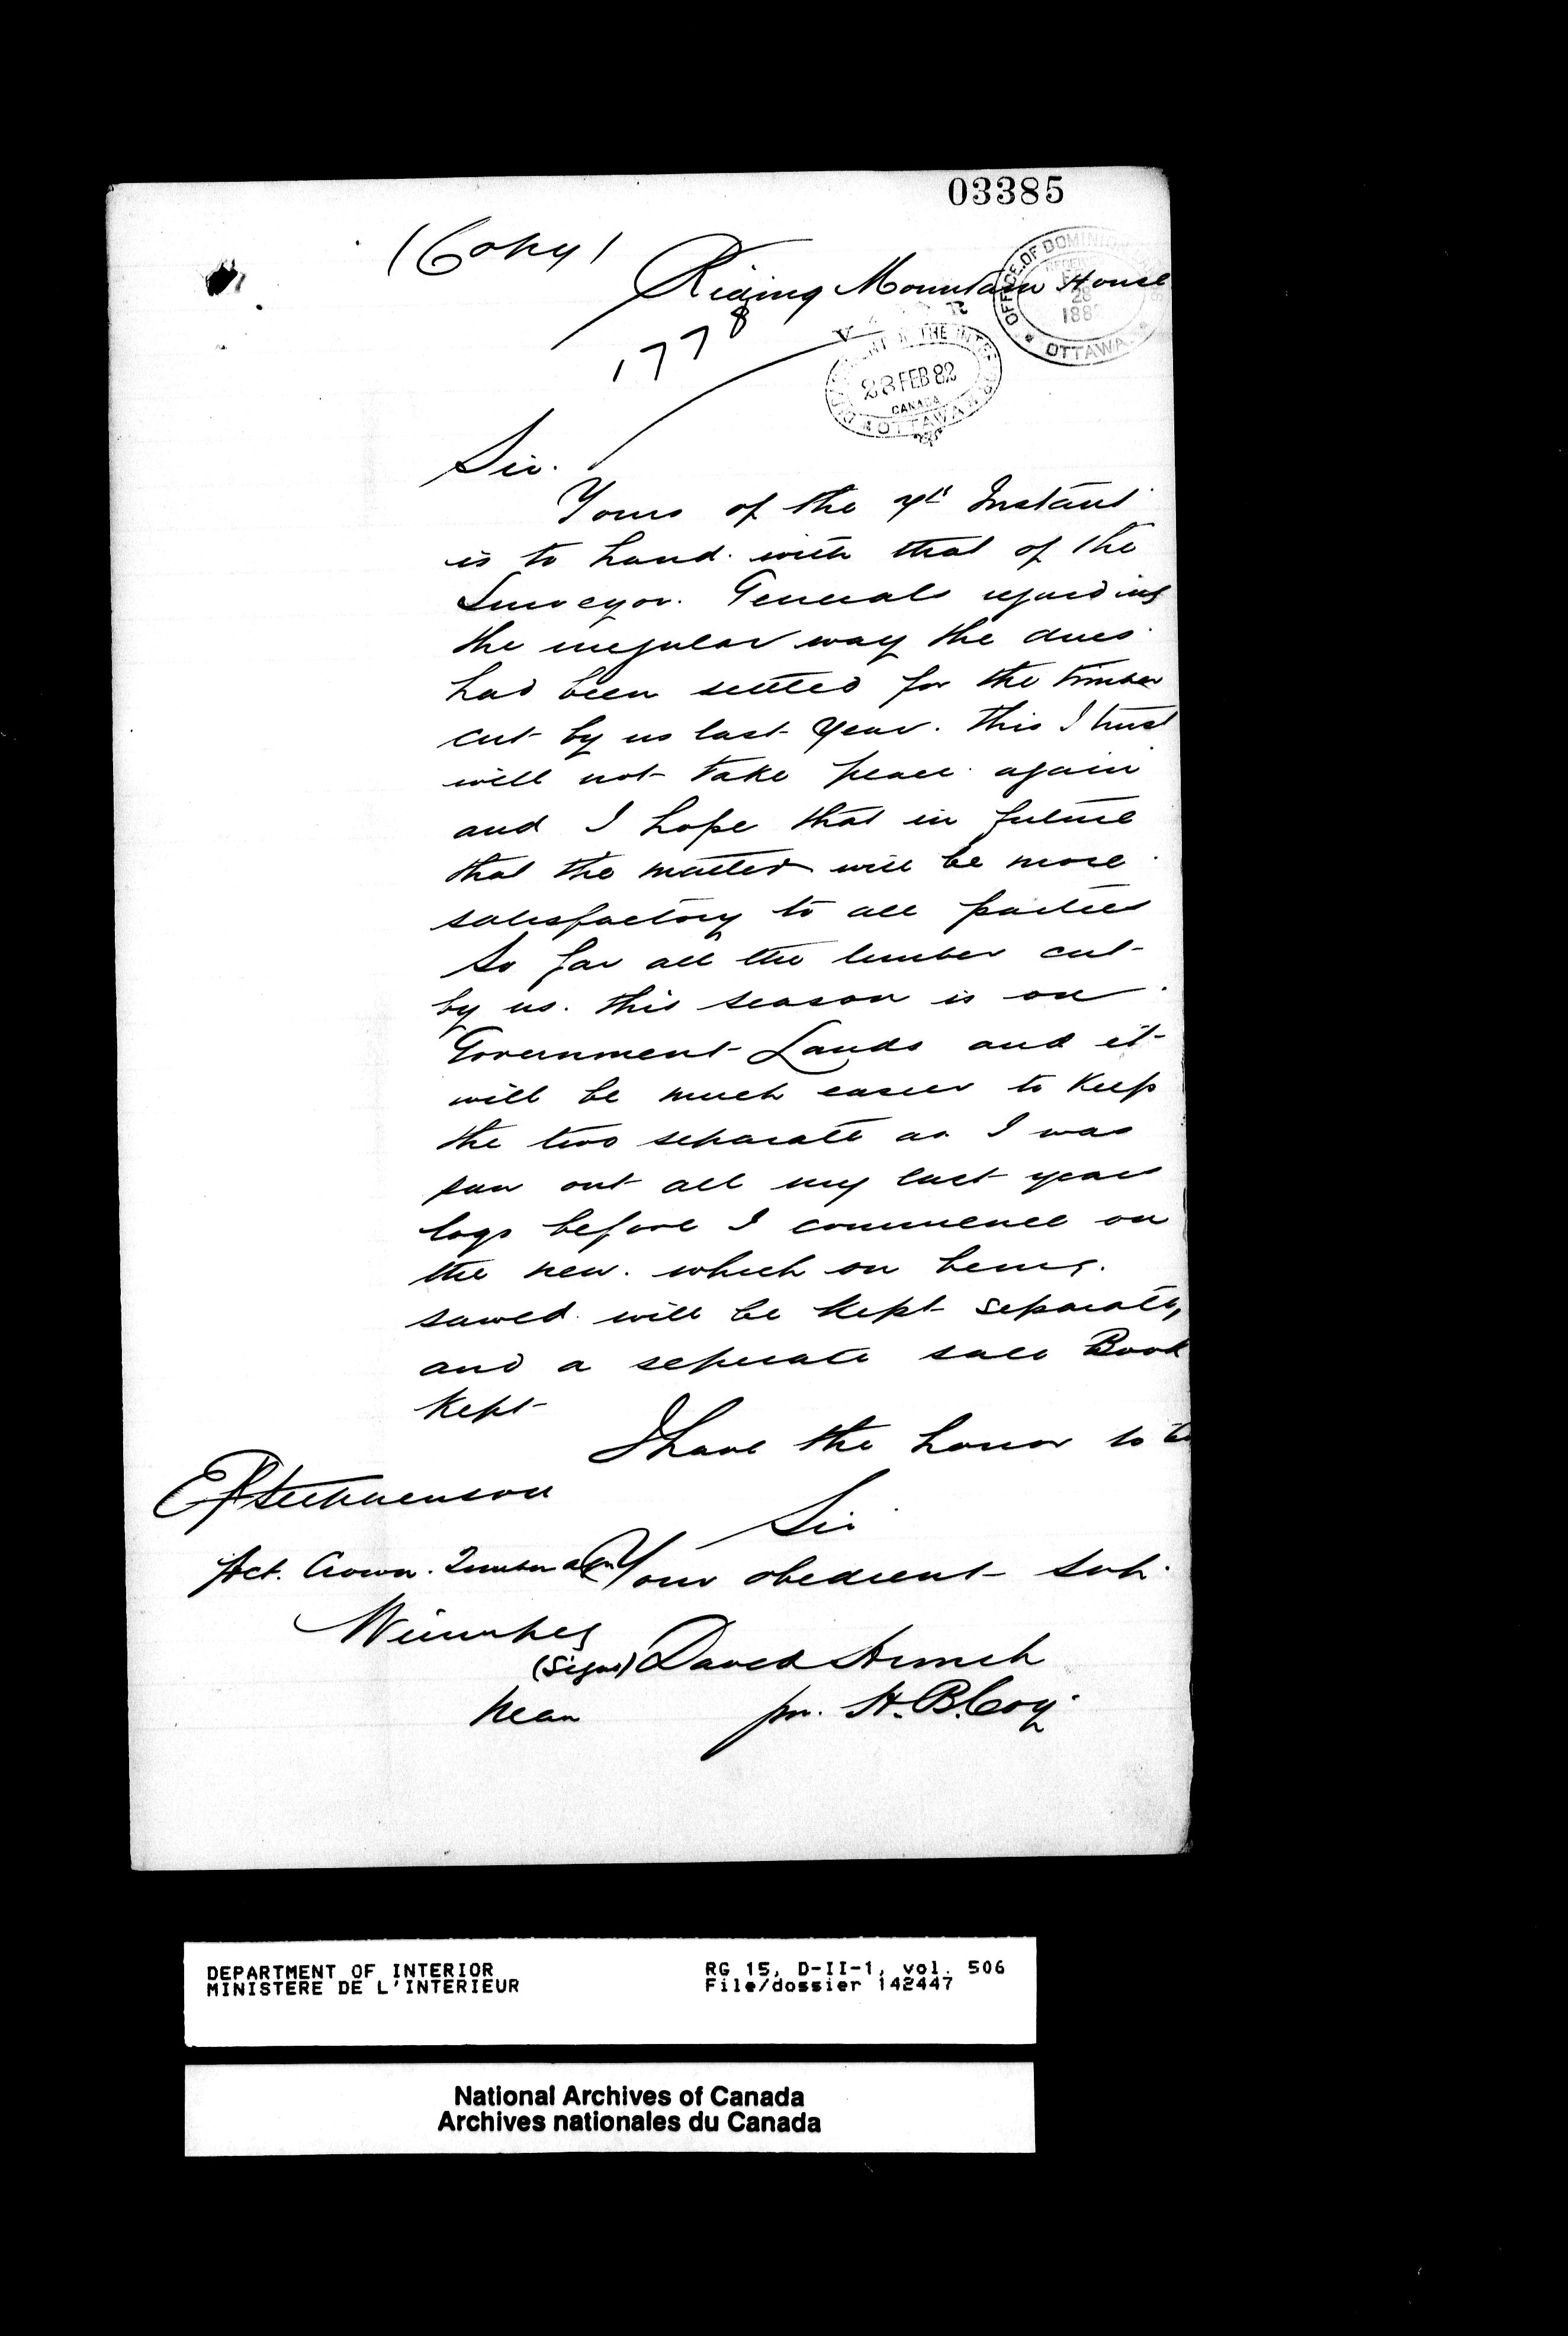 03385
(Copy)
Riding Mountain House
1778
OFFICE OF DOMINION
28
188
OTTAWA
THE INTE
28 FEB 82
CANADA
OTTAWA
Sir.
Yours of the 7th Instant
is to hand. with that of the
Surveyor. Generals regarding
the irregular way the dues
had been settled for the timber
cut by us last Year. this I trust
will not take place again
and I hope that in future
that the matter will be more
satisfactory to all parties
So far all the lumber cut
by us. this season is on
Government Lands and it
will be much easier to Keep
the two separate as I was
saw out all my last years
logs before I commence on
the new. which on being.
sawed. will be Kept separate,
and a seperate sale Book
Kept
I have the honor to be
Sir
Your obedient
EF Stephenson
Act. Crown. Timber agt
Winnipeg
Man
(Signd) David
pr. H.B.Coy.
DEPARTMENT OF INTERIOR
MINISTERE DE L'INTERIEUR
RG 15, D-II-1, vol. 506
File/dossier 142447
National Archives of Canada
Archives nationales du Canada